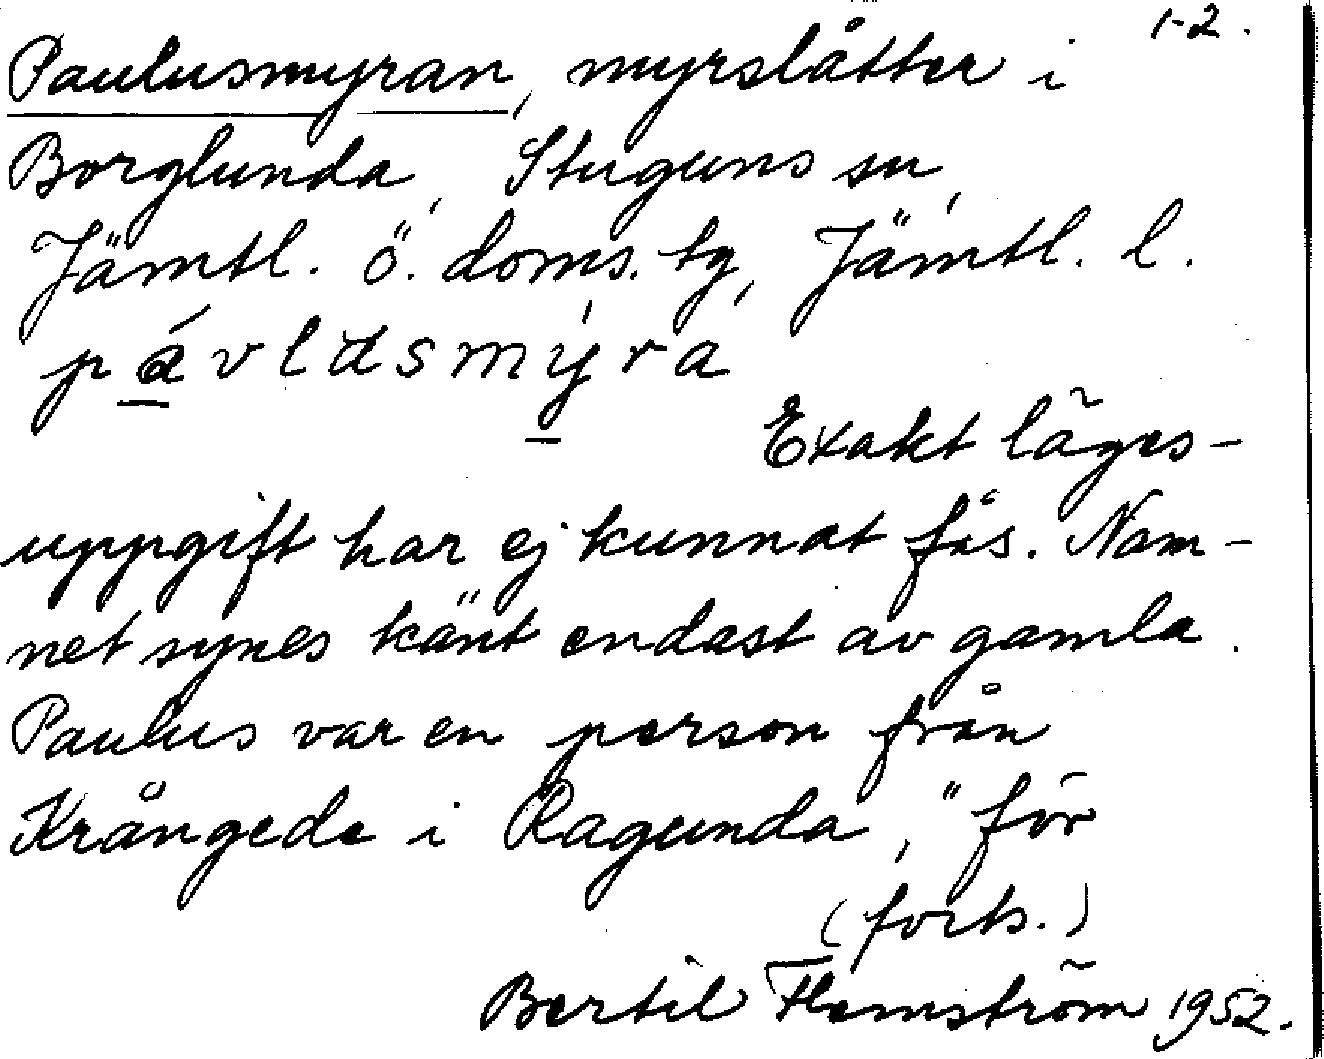 1-2.
Paulusmyran, myrslåtter i
Borglunda, Stuguns sn,
Jämtl. ö. doms. tg, Jämtl. l.
Exakt läges-
uppgift har ej kunnat fås. Nam-
net synes känt endast av gamla.
Paulus var en person från
Krångede i Ragunda, "för
(forts.)
Bertil Flemström 1952.